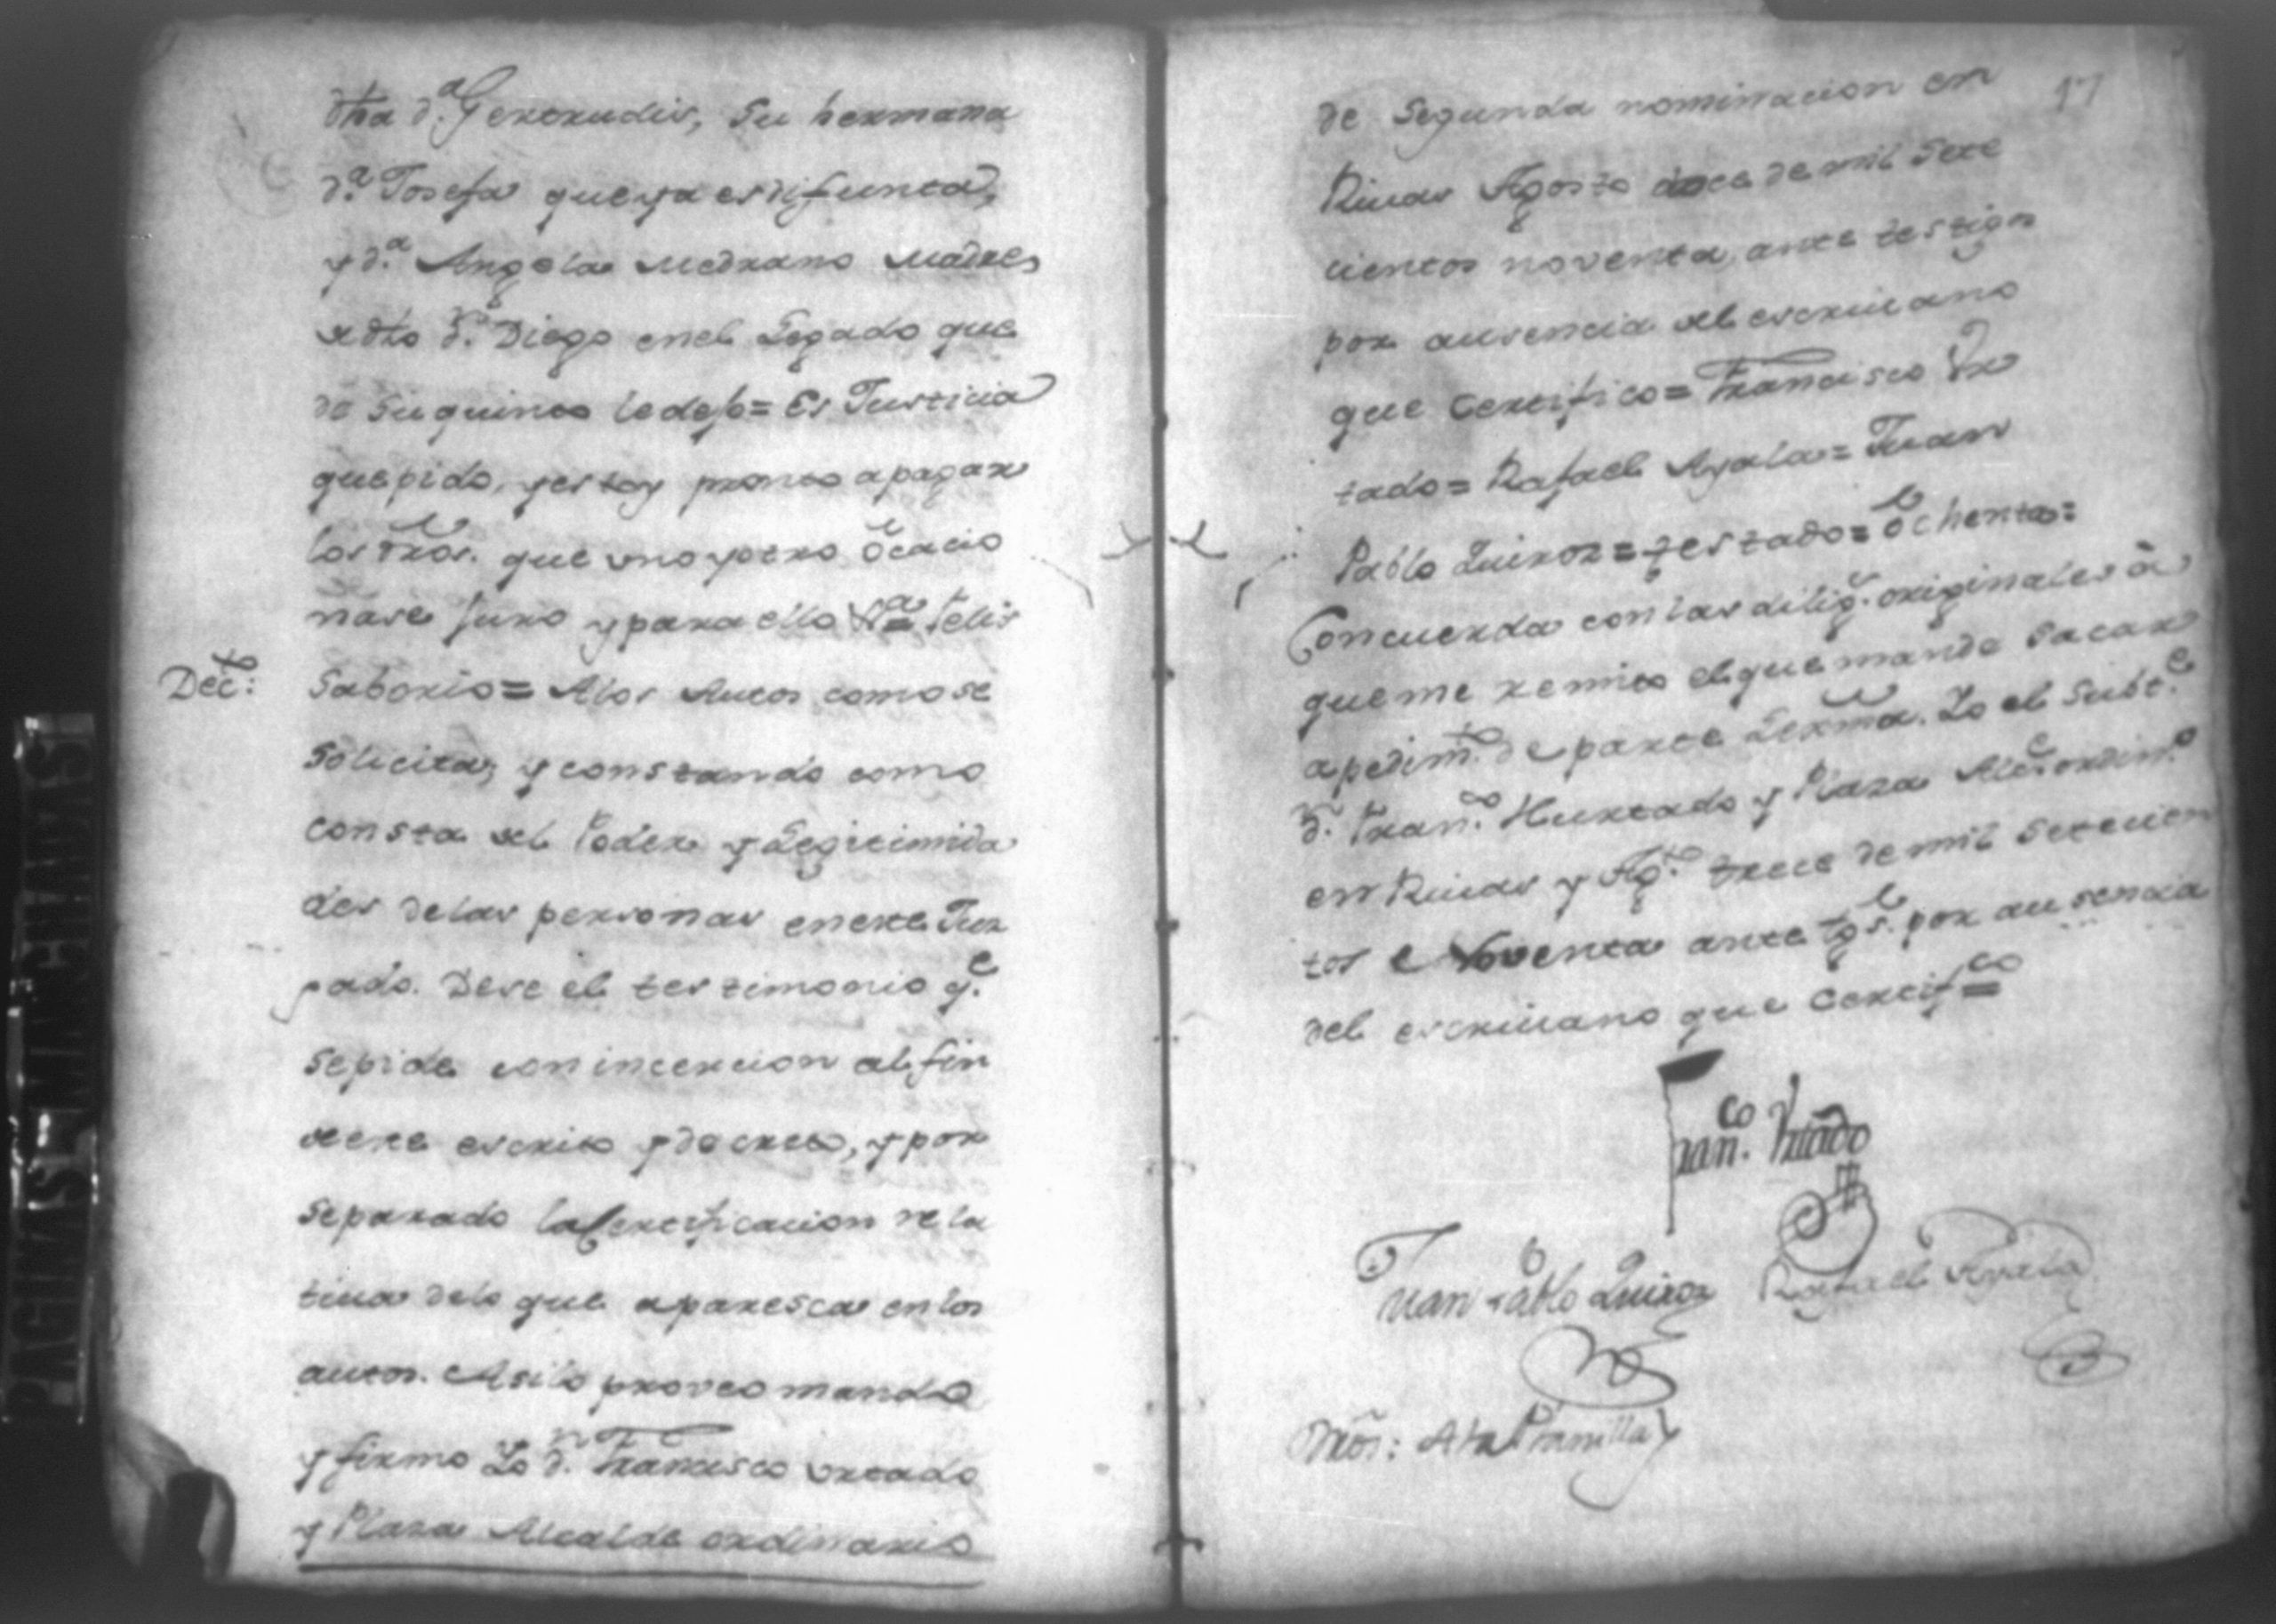 dha d.ª Gertrudis, su hermana
d.ª Josefa que ya es difunta,
y d.ª Angela Medrano Madre,
de dho d.n Diego en el Legado que
de su quinto le dejo = Es Justicia
que pido, y estoy pronto a pagar
los dros. que uno y otro ocacio
nare juro y para ello V.ª = Felis
Dec.to: Saborio = A los Autos como se
solicita; y constando como
consta del Poder y Legitimida
des de las personas en este Juz
gado. Dese el testimonio q.e
se pide con incercion al fin
de este escrito y decreto, y por
separado la Certificacion rela
tiva de lo que aparesca en los
autos. Asi lo proveo mando
y firmo Yo d.n Francisco Urtado
y Plaza Alcalde ordinario
17
de segunda nominacion en
Rivas Agosto doce de mil sete
cientos noventa, ante testigos
por ausencia del escrivano
que Certifico = Francisco Ur
tado = Rafael Ayala = Juan
Pablo Quiroz = testado = ochenta =
Concuerda con las dilig.s originales à
que me remito el que mande sacar
a pedim.to de parte Lexma. Yo el Subt.e
d.n Fran.co Hurtado y Plaza Alc.e ordin.o
en Rivas y Ag.to trece de mil setecien
tos e Noventa ante tgs. por ausencia
del escrivano que Certif.co =
Fran.co Hurtado
Juan Pablo Quiroz Rafael Ayala
Dros:
PAGINAS MANCHADAS